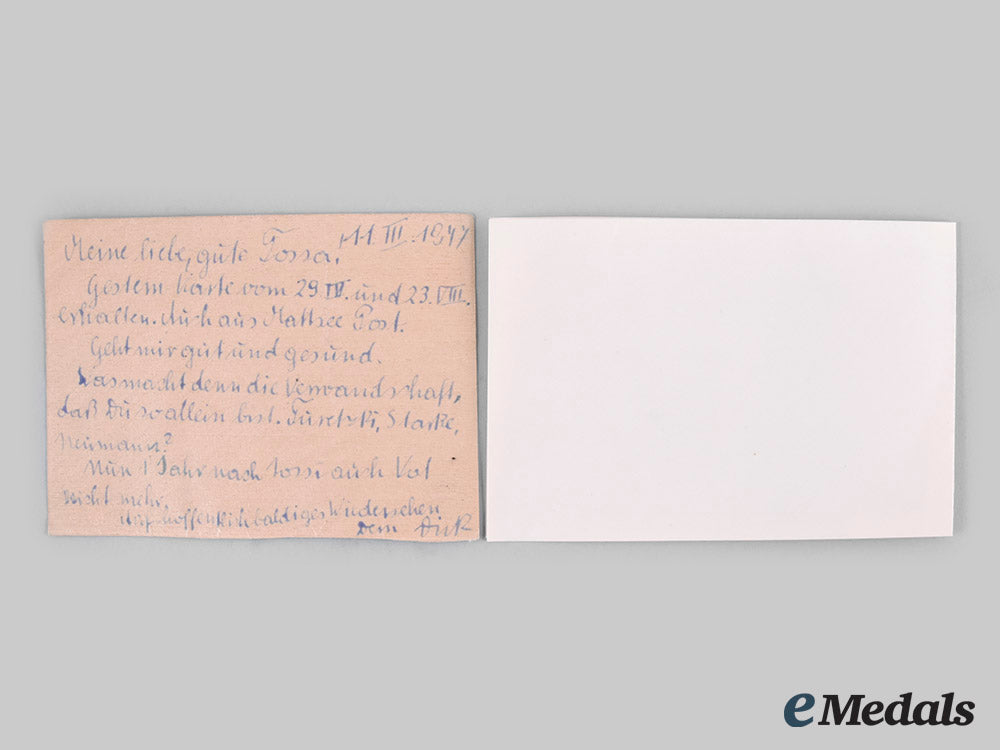 11.III.1947
Meine liebe, gute Tossa,
Gestern Karte vom 29.IV. und 23.VIII.
erhalten. Auch aus Mattsee Post.
Geht mir gut und gesund.
Was macht denn die Verwandschaft,
daß Du so allein bist. Turetzki, Starke,
Neumann?
Nun 1 Jahr nach Tossi auch Vat
nicht mehr.
Auf hoffentlich baldiges Wiedersehen
Dein Dick
eMedals